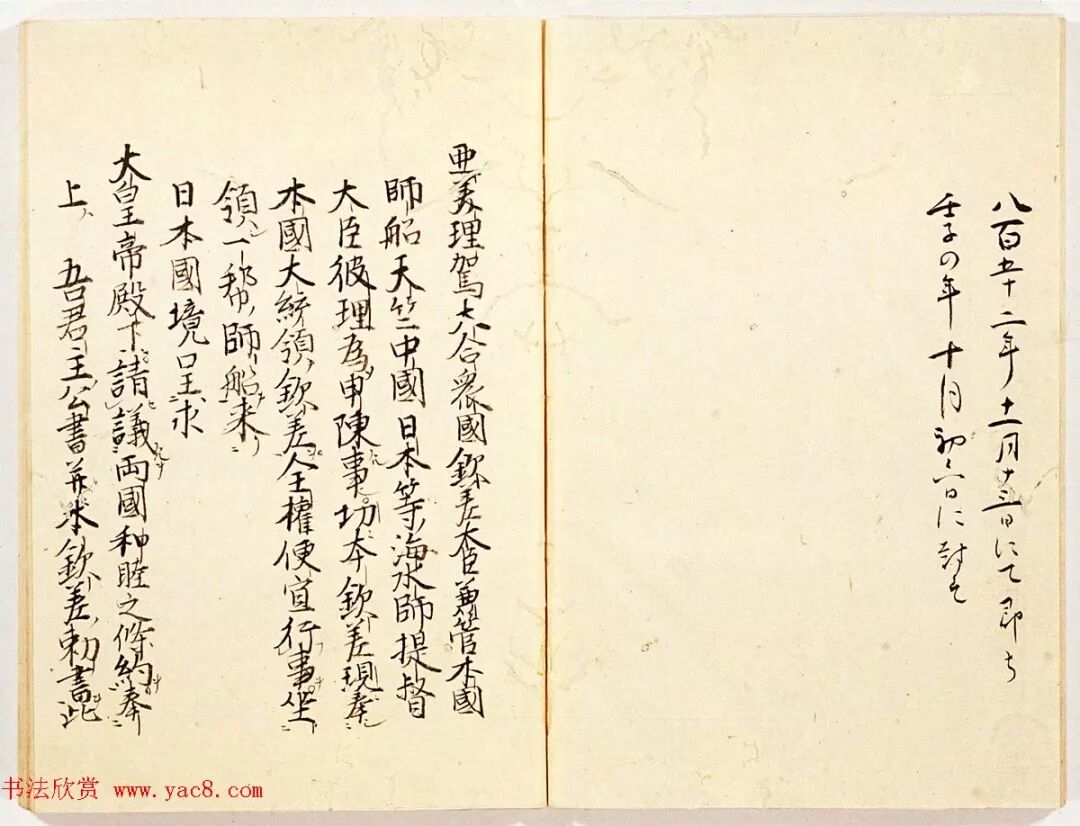 八百五十二年十一月十三日にて即ち
壬子の年十月初六日に対す
亜美理駕大合衆國欽差大臣兼管本國
師船天竺中國日本等海水師提督
大臣彼理為申陳事切本欽差現奉
本國大統領欽差全權便宜行事坐
領一幇師船来
日本國境口呈求
大皇帝殿下請議両國和睦之條約奉
上 吾君主公書并本欽差勅書此
书法欣赏 www.yac8.com